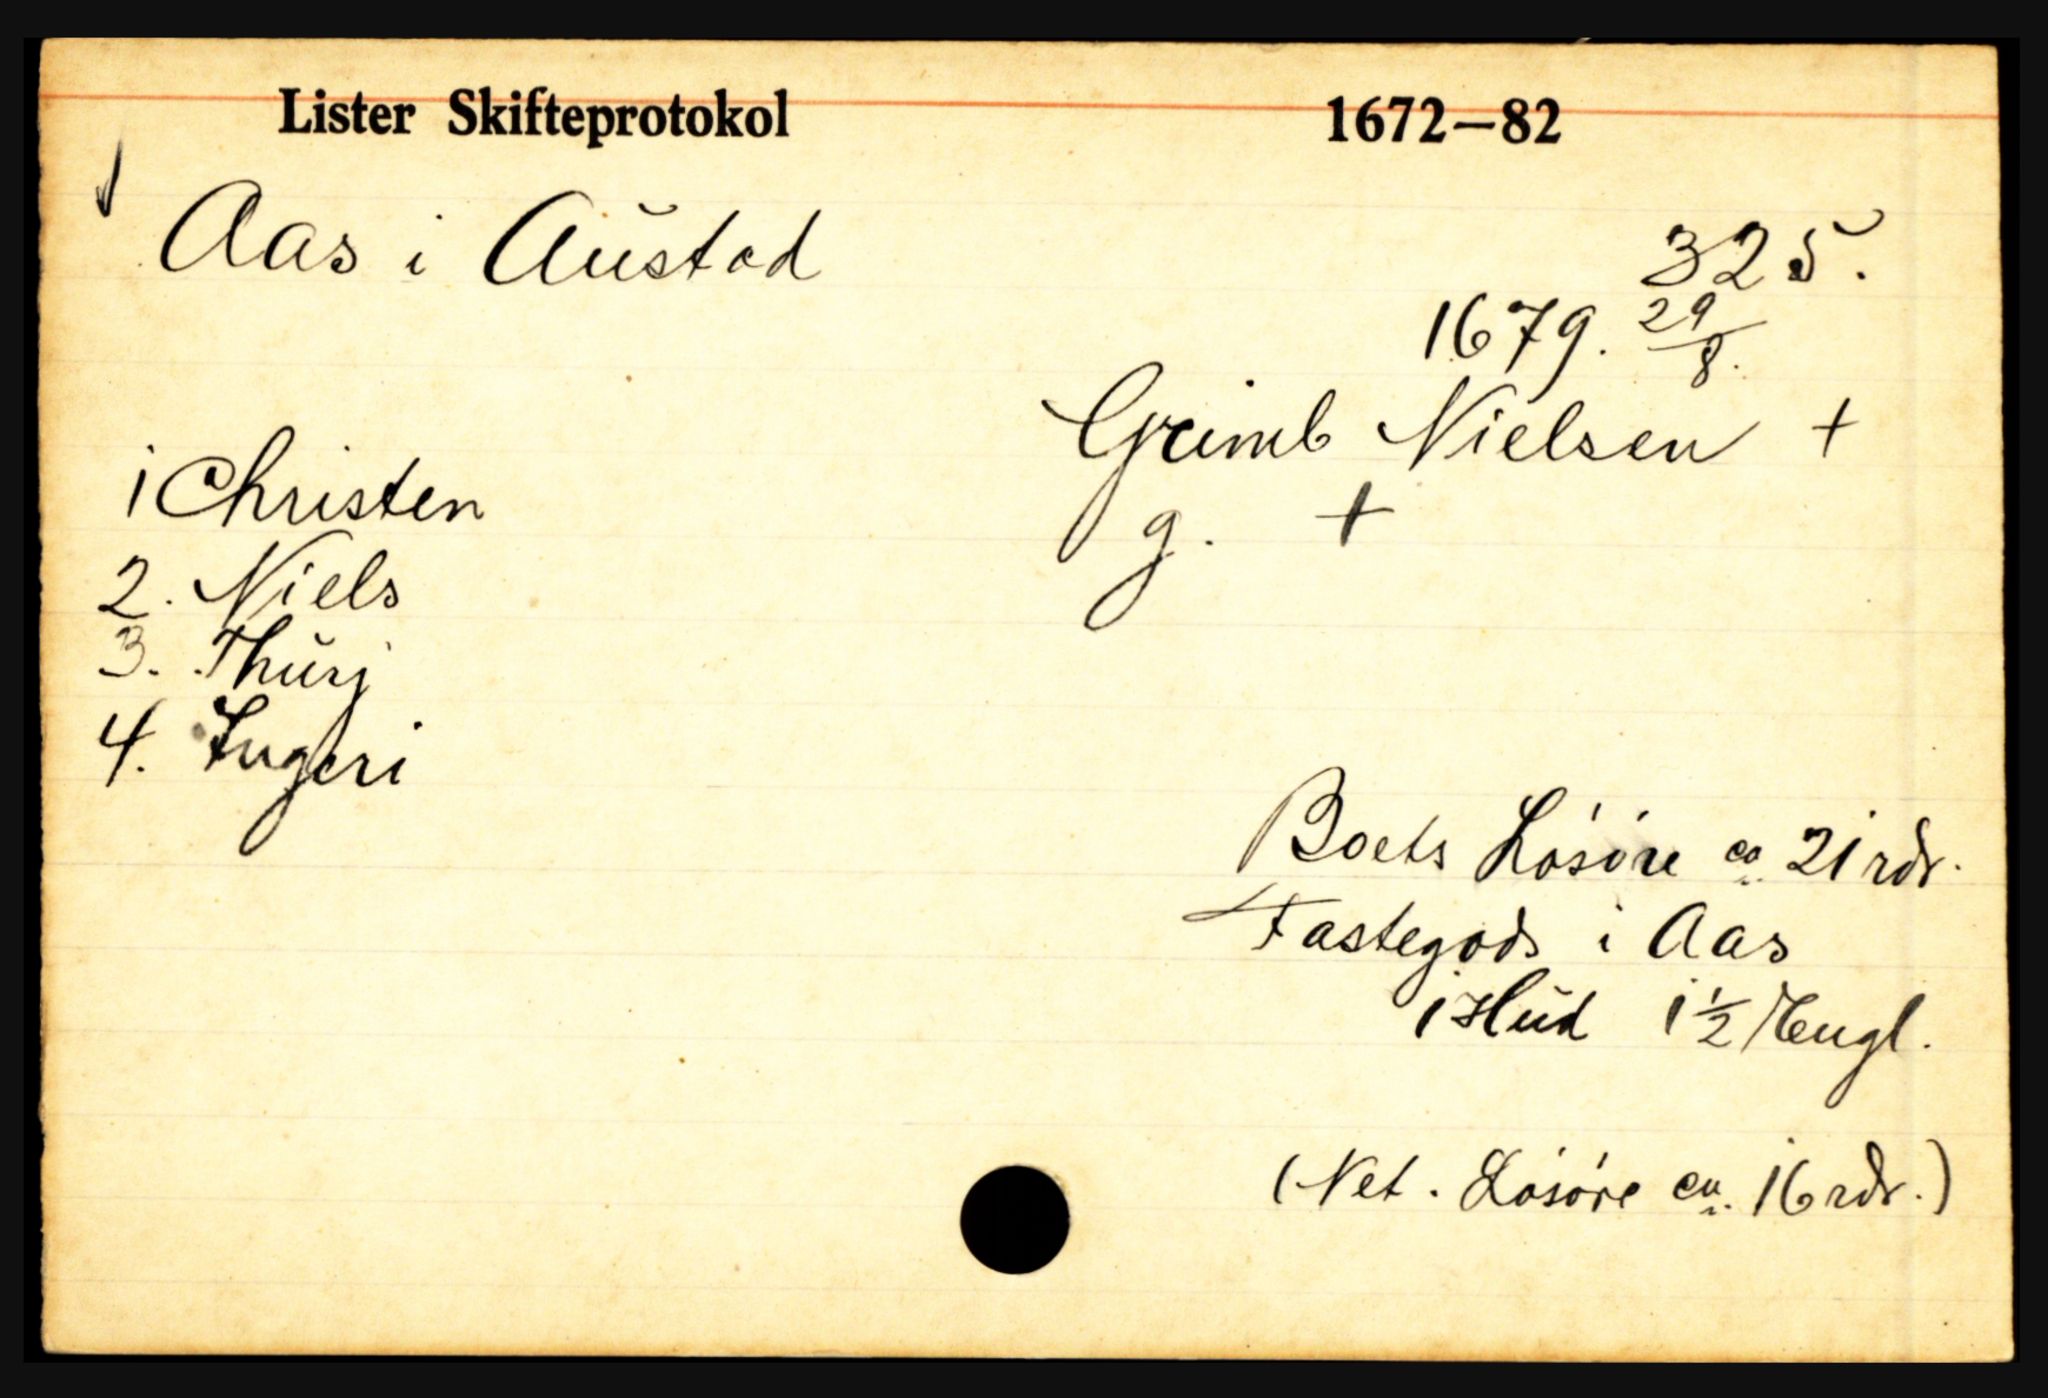 Lister Skifteprotokol 1672—82
Aas i Austad
325.
1679. 29/8.
Grimb Nielsen +
g. +
1 Christen
2. Niels
3. Thurj
4. Ingeri
Boets Løsøre ca. 21 rdr.
Fastegods i Aas
1 Hud 1 1/2 Engl.
(Net. Løsøre ca. 16 rdr.)